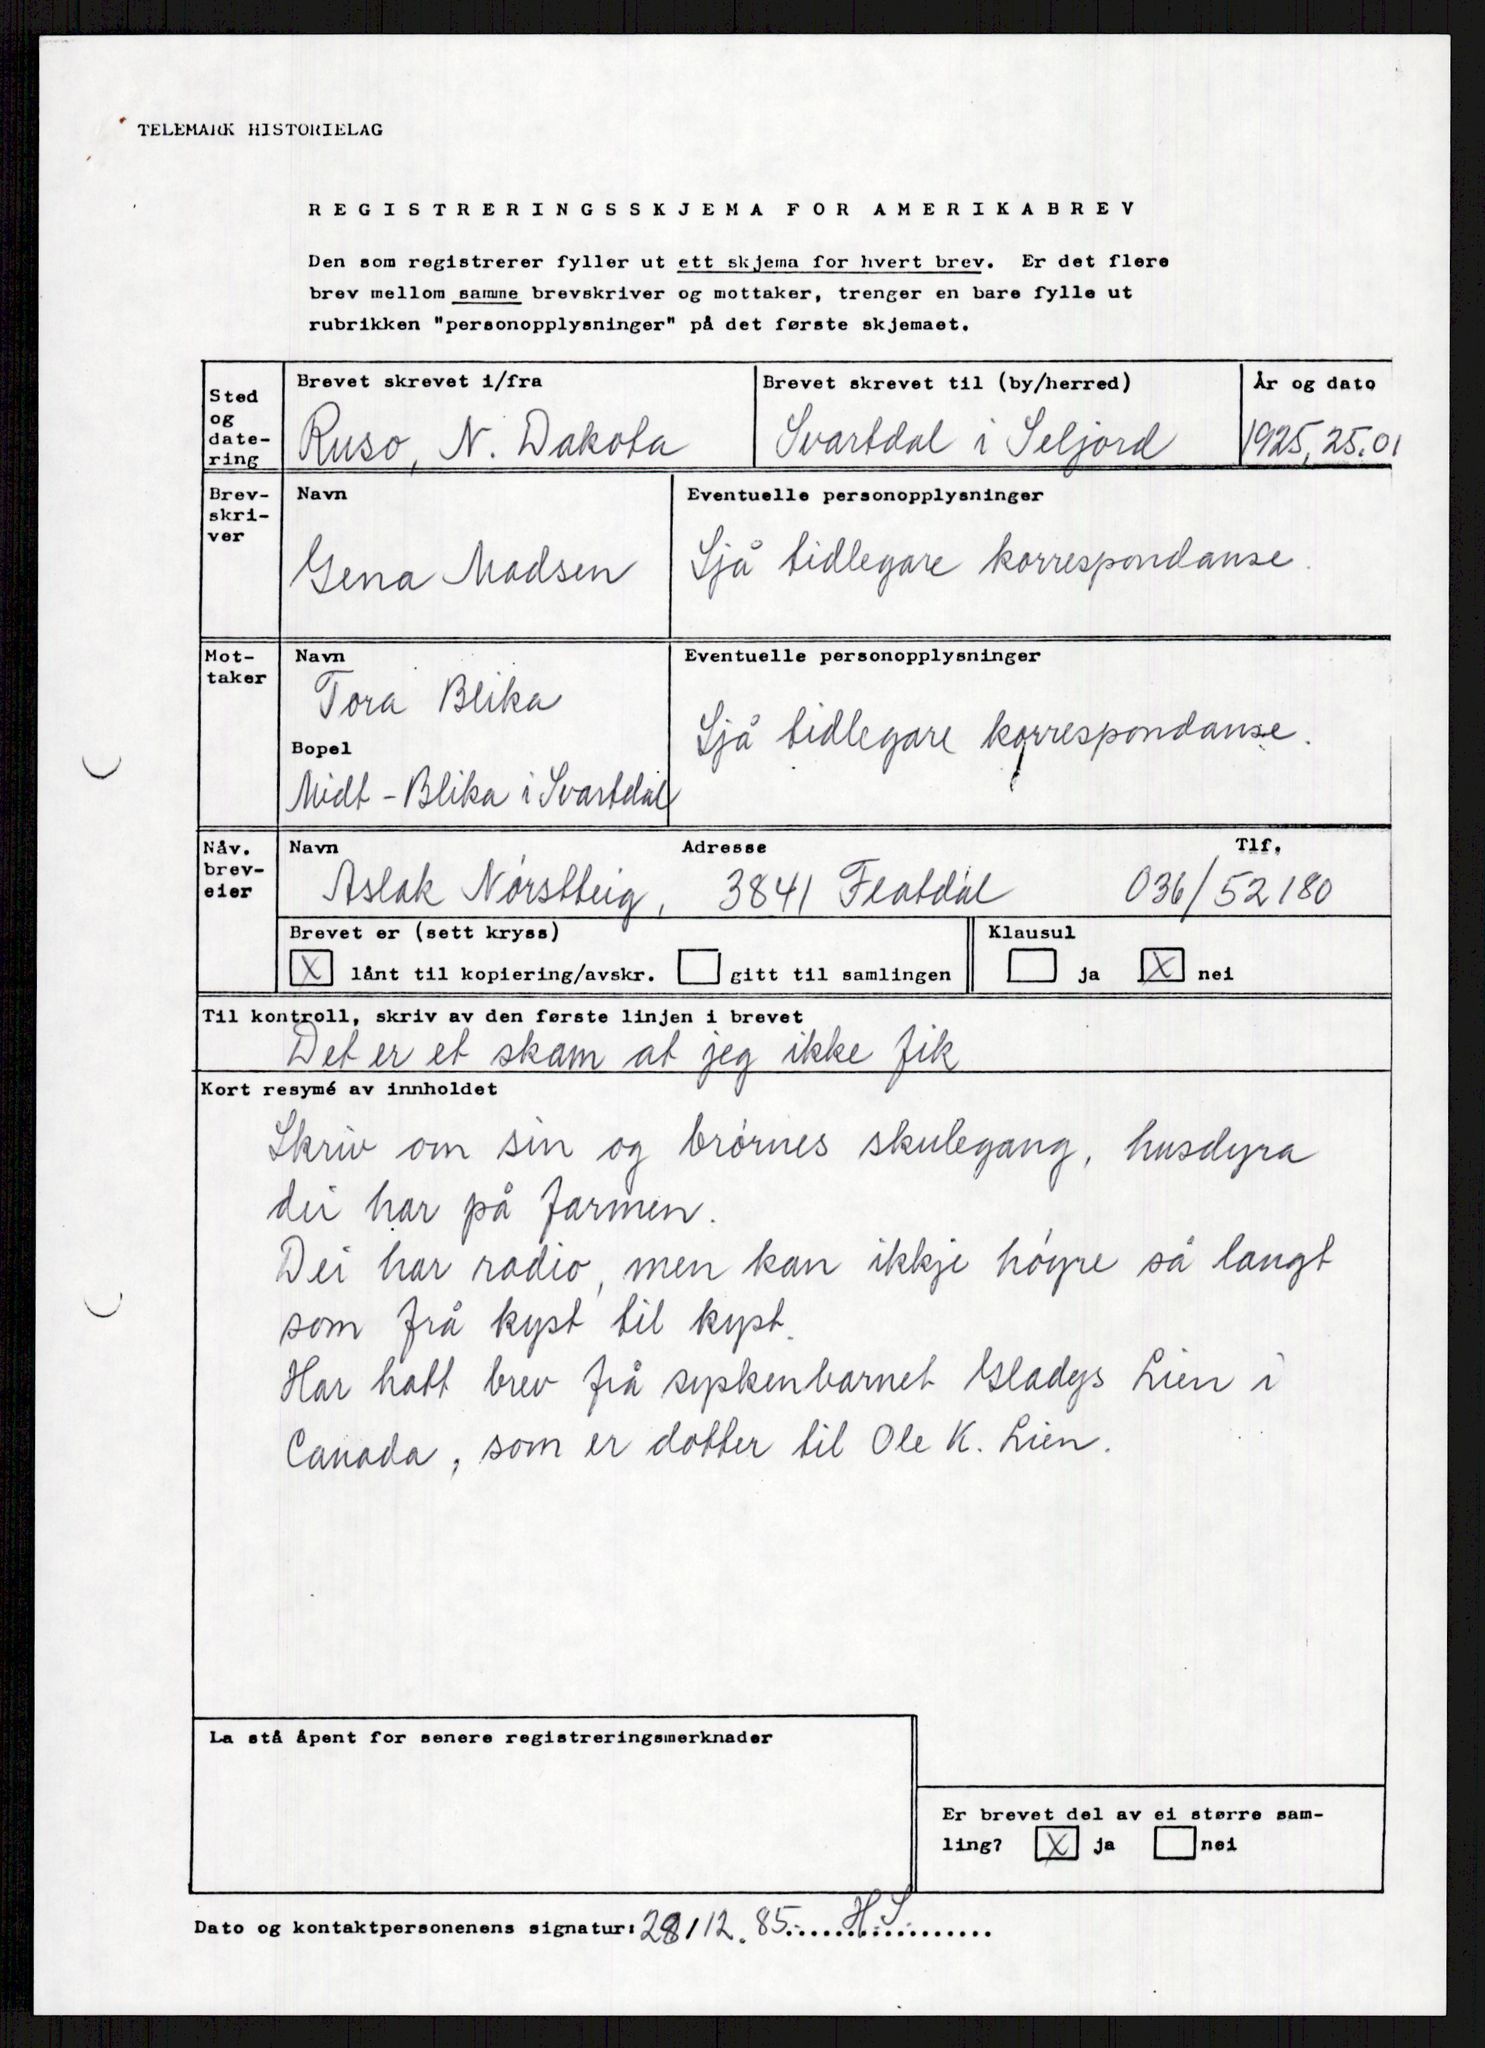 TELEMARK HISTORIELAG
REGISTRERINGSSKJEMA FOR AMERIKABREV
Den som registrerer fyller ut ett skjema for hvert brev. Er det flere
brev mellom samme brevskriver og mottaker, trenger en bare fylle ut
rubrikken "personopplysninger" på det første skjemaet.
Sted og date- ring
Brevet skrevet i/fra
Ruso, N. Dakota
Brevet skrevet til (by/herred)
Svartdal i Seljord
År og dato
1925, 25.01
Brev- skri- ver
Navn
Gena Madsen
Eventuelle personopplysninger
Sjå tidlegare korrespondanse.
Mot- taker
Navn
Tora Blika
Bopel
Midt - Blika i Svartdal
Eventuelle personopplysninger
Sjå tidlegare korrespondanse.
Nåv. brev- eier
Navn Adresse Tlf.
Aslak Nórstteig, 3841 Flatdal 036/52180
Brevet er (sett kryss)
X lånt til kopiering/avskr. gitt til samlingen
Klausul
ja X nei
Til kontroll, skriv av den første linjen i brevet
Det er et skam at jeg ikke fik
Kort resymé av innholdet
Skriv om sin og brórnes skulegang, husdyra
dei har på farmen.
Dei har radio, men kan ikkje hóyre så langt
som frå kyst til kyst.
Har hatt brev frå syskenbarnet Gladys Lien i
Canada, som er dotter til Ole K. Lien.
La stå åpent for senere registreringsmerknader
Er brevet del av ei større sam-
ling? X ja nei
Dato og kontaktpersonenens signatur: 28/12.85 HS